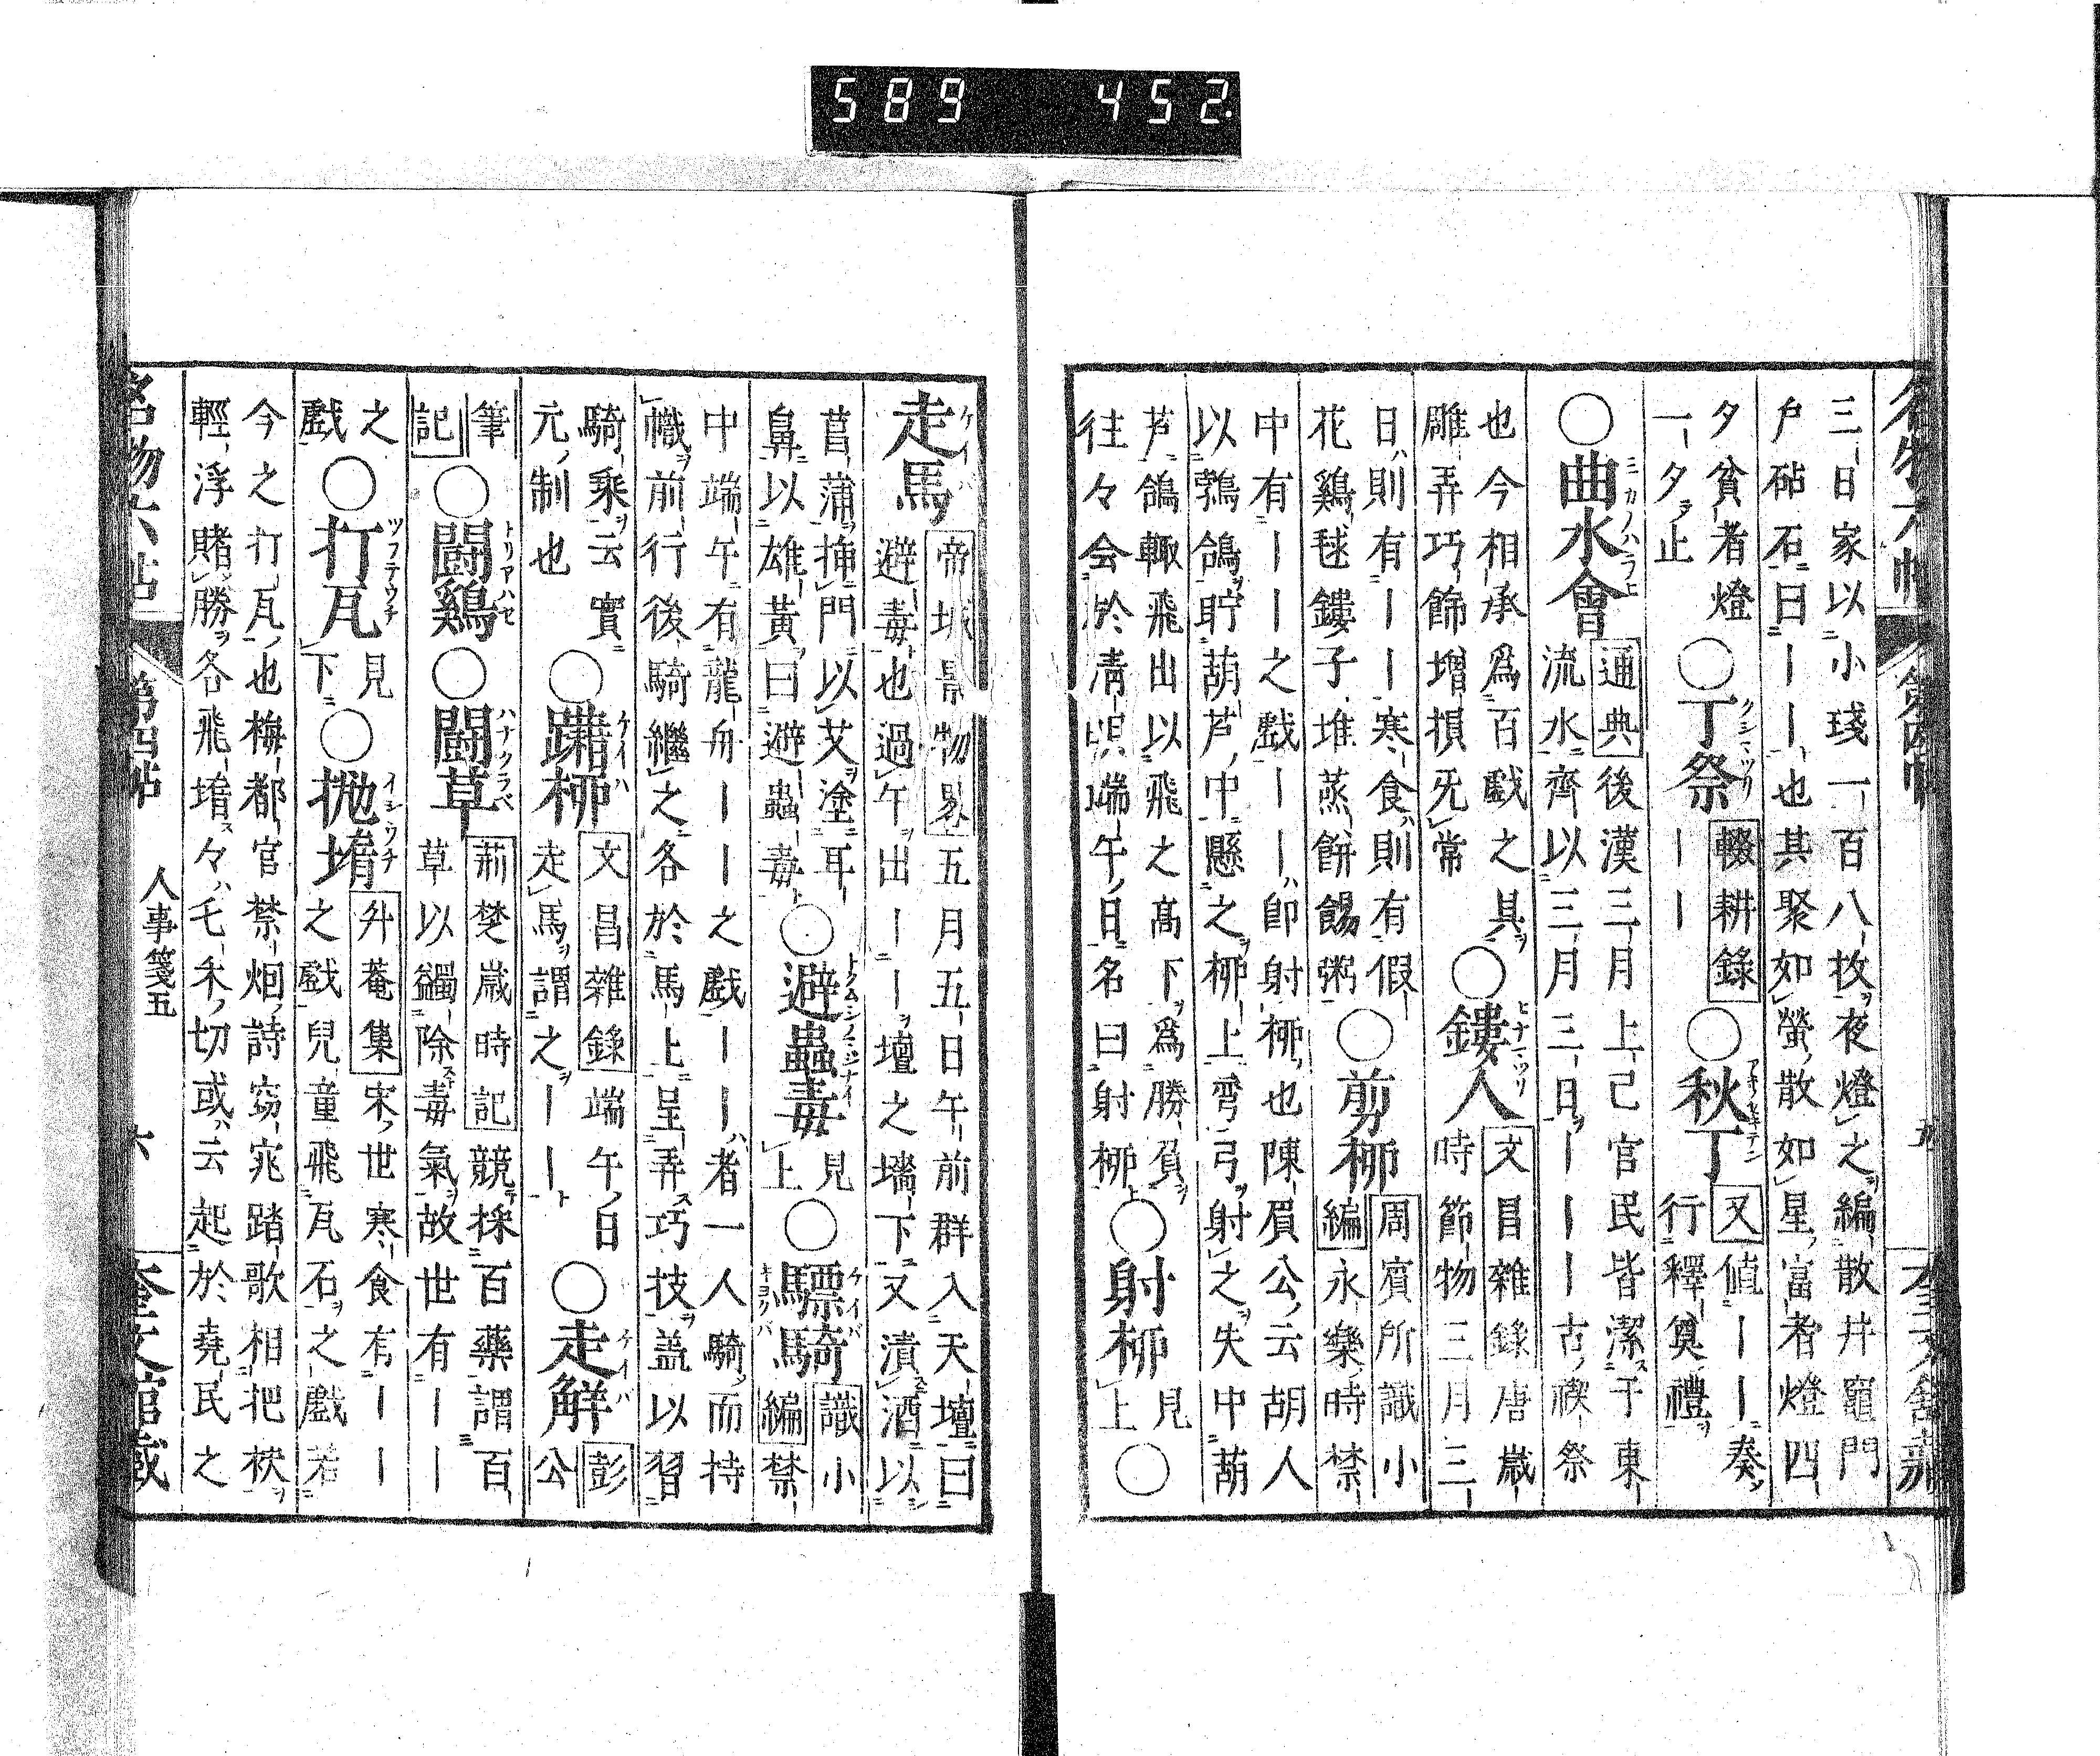 589 452.
三日家以小琖一百八枚夜燈之編散井竈門
戶砧石曰｜｜也其聚如螢散如星富者燈四
夕貧者燈
一夕止
○丁祭 輟耕錄
｜｜
○秋丁 又 値｜｜奏
行釋奠禮
○曲水會 通典 後漢三月上己官民皆潔于東
流水齊以三月三日｜｜｜古禊祭
也今相承爲百戲之具
雕弄巧飾增損旡常
○鏤人 文昌雜錄 唐歲
時節物三月三
日則有｜｜寒食則有假
花鷄毬鏤子堆蒸餅餳粥
○剪柳 周賓所識小
編 永樂時禁
中有｜｜之戲｜｜卽射柳也陳眉公云胡人
以鵓鴿貯葫芦中懸之柳上彎弓射之失中葫
芦鴿輙飛出以飛之髙下爲勝負
往々会於淸明端午日名曰射柳
○射柳 見
上
○
走馬 帝城景物畧 五月五日午前群入天壇曰
避毒也過午出｜｜壇之墻下又漬酒以
菖蒲揷門以艾塗耳
鼻以雄黃曰避蟲毒
○避蟲毒 見
上
○驃騎 識小
編 禁
中端午有龍舟｜｜之戲｜｜者一人騎而持
幟前行後騎繼之各於馬上呈弄巧技盖以習
騎乘云實
元制也
○躤柳 文昌雜錄 端午日
走馬謂之｜｜
○走解 彭
公
筆
記
○鬪鷄
○鬪草 荊楚歲時記 競採百藥謂百
草以蠲除毒氣故世有｜｜
之
戲
○打瓦 見
下
○抛堶 升菴集 宋世寒食有｜｜
之戲兒童飛瓦石之戲若
今之打瓦也梅都官禁烟詩窈窕踏歌相把袂
輕浮賭勝各飛堶々乇禾切或云起於堯民之
名物六帖 第四帖 人事箋五 六 奎文館藏